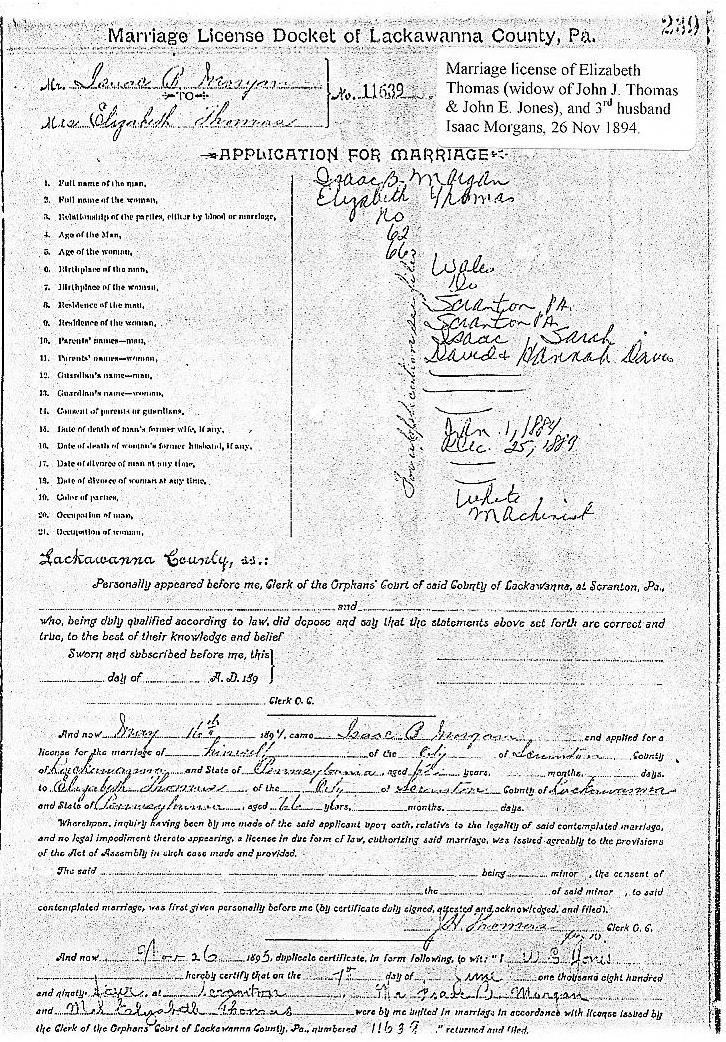 239
Marriage License Docket of Lackawanna County, Pa.
Mr. Isaac B Morgan
—TO—
Mrs Elizabeth Thomas
No. 11639
Marriage license of Elizabeth
Thomas (widow of John J. Thomas
& John E. Jones), and 3rd husband
Isaac Morgans, 26 Nov 1894.
APPLICATION FOR MARRIAGE
1. Full name of the man, Isaac B. Morgan
2. Full name of the woman, Elizabeth Thomas
3. Relationship of the parties, either by blood or marriage, no
4. Age of the Man, 62
5. Age of the woman, 66
6. Birthplace of the man, Wales
7. Birthplace of the woman, Do
8. Residence of the man, Scranton PA.
9. Residence of the woman, Scranton PA
10. Parents' names—man, Isaac Sarah
11. Parents' names—woman, David & Hannah Davis
12. Guardian's name—man,
13. Guardian's name—woman,
14. Consent of parents or guardians,
15. Date of death of man's former wife, if any, Jan. 1, 1884
16. Date of death of woman's former husband, if any, Dec. 25, 1889
17. Date of divorce of man at any time,
18. Date of divorce of woman at any time,
19. Color of parties, White
20. Occupation of man, Machinist
21. Occupation of woman,
For application see files
Lackawanna County, ss.:
Personally appeared before me, Clerk of the Orphans' Court of said County of Lackawanna, at Scranton, Pa.,
and
who, being duly qualified according to law, did depose and say that the statements above set forth are correct and
true, to the best of their knowledge and belief
Sworn and subscribed before me, this
day of A. D. 189
Clerk O. C.
And now May 16th 1894, came Isaac B Morgan and applied for a
license for the marriage of himself of the City of Scranton County
of Lackawanna and State of Pennsylvania aged 62 years, months, days.
to Elizabeth Thomas of the City of Scranton County of Lackawanna
and State of Pennsylvania, aged 66 years, months, days.
Whereupon, inquiry having been by me made of the said applicant upon oath, relative to the legality of said contemplated marriage,
and no legal impediment thereto appearing, a license in due form of law, authorizing said marriage, was issued agreeably to the provisions
of the Act of Assembly in such case made and provided.
The said being minor, the consent of
the of said minor, to said
contemplated marriage, was first given personally before me (by certificate duly signed, attested and acknowledged, and filed).
J H Thomas Clerk O. C.
And now Nov 26 1895, duplicate certificate, in form following, to wit: "I W S Jones
hereby certify that on the 7th day of June one thousand eight hundred
and ninety four, at Scranton Mr Isaac B Morgan
and Mrs Elizabeth Thomas were by me united in marriage in accordance with license issued by
the Clerk of the Orphans' Court of Lackawanna County, Pa., numbered 11639 " returned and filed.